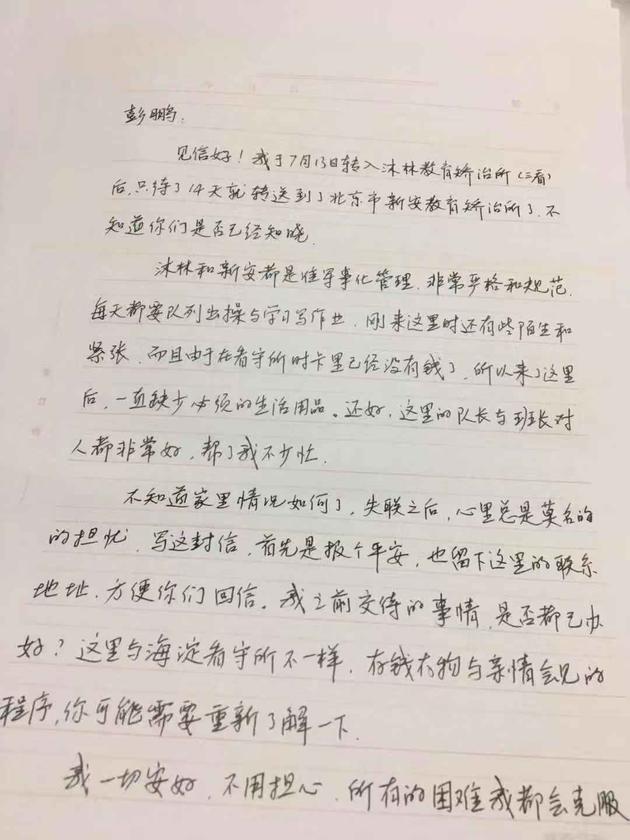 彭鹏：
见信好！我于7月13日转入沐林教育矫治所（三看）
后，只待了14天就转送到了北京市新安教育矫治所了，不
知道你们是否已经知晓．
沐林和新安都是准军事化管理，非常严格和规范．
每天都要队列出操与学习写作业．刚来这里时还有些陌生和
紧张．而且由于在看守所时卡里已经没有钱了，所以来了这里
后，一直缺少必须的生活用品。还好，这里的队长与班长对
人都非常好，帮了我不少忙．
不知道家里情况如何了，失联之后，心里总是莫名的
的担忧．写这封信，首先是报个平安，也留下这里的联系
地址．方便你们回信。我之前交待的事情，是否都已办
好？这里与海淀看守所不一样，存钱存物与亲情会见的
程序，你可能需要重新了解一下．
我一切安好．不用担心．所有的困难我都会克服